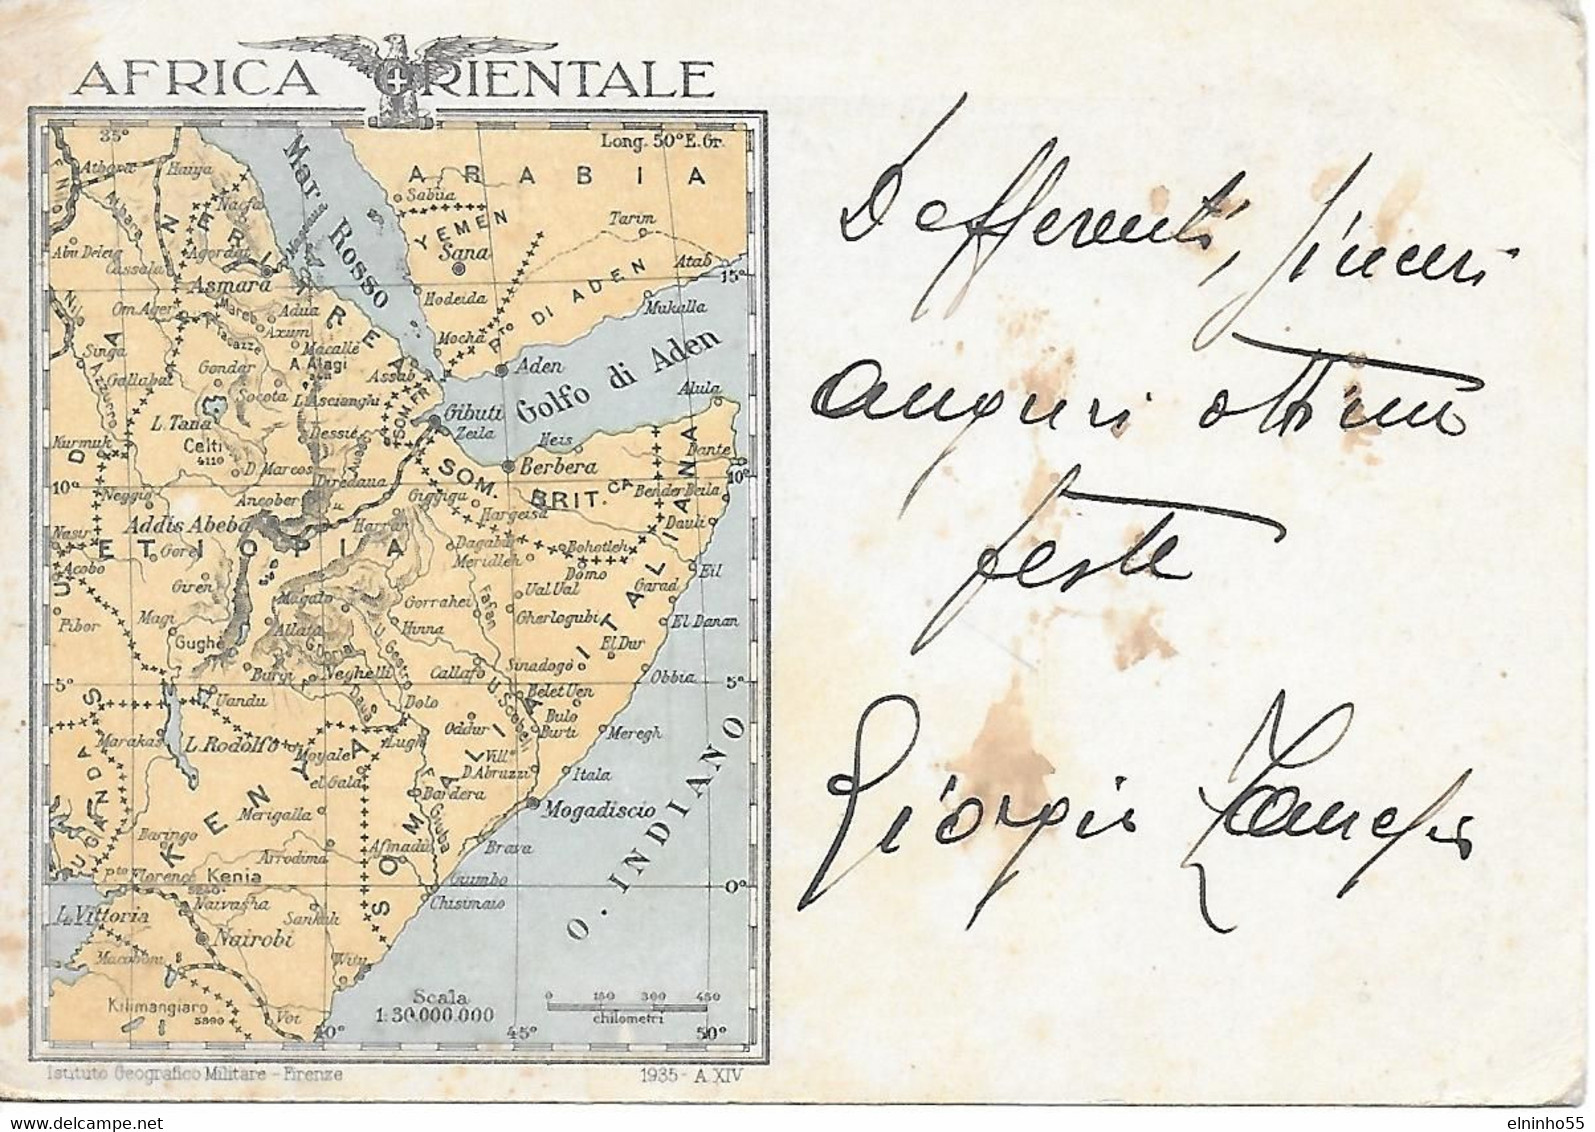 AFRICA ORIENTALE
35°
Long. 50° E. Gr.
Mar Rosso
ARABIA
Athara
Haiya
Sabiia
YEMEN
Tarim
Nacfa
Massaua
Sana
Atab
Abu Deleig
Cassala
Agordat
15°
Asmara
ERITREA
Hodeida
Mukalla
Pto DI ADEN
Om Ager
Mareb
Adua
Axum
Tacazze
Mocha
Macallè
Singa
Gondar
A. Alagi
Assab
Aden
Golfo di Aden
Gallabat
Socota
L. Ascianghi
Alula
Azzurro
SOM. FR.
L. Tana
Gibuti
Zeila
Kurmuk
Celti
4110
Dessiè
Heis
Dante
D. Marcos
Berbera
10°
10°
Neggio
Ancober
Diredaua
Giggiga
SOM. BRIT.CA
Bender Beila
Addis Abeba
Hargeisa
Harrar
Dauli
Nasir
ETIOPIA
Gore
Dagabur
Bohotleh
Meridleh
Acobo
Domo
Eil
Giren
Ual Ual
Garad
Magalo
Gorrahei
Fafan
Magi
Gherlogubi
El Danan
Pibor
Allata
Hinna
Gughè
El Dur
Callafo
Sinadogo
Burgi
Neghelli
Obbia
5°
5°
U. Scebeli
Belet Uen
Uandu
Daua
Dolo
Bulo Burti
Oddur
Meregh
Marakas
L. Rodolfo
Lugh
Moyale
Vill.o D. Abruzzi
el Gala
Itala
SUDAN
UGANDA
KENYA
SOMALIA ITALIANA
Bardera
Merigalla
Mogadiscio
O. INDIANO
Baringo
Giuba
Arrodima
Afmadù
Brava
Pto Florence
Kenia
5240
Giumbo
0°
Naivasha
Chisimaio
L. Vittoria
Nairobi
Witu
Kilimangiaro
5890
Voi
Scala
1:30.000.000
0 150 300 450
chilometri
40°
45°
50°
Istituto Geografico Militare - Firenze
1935 - A. XIV
Defferenti, sinceri
auguri ottime
feste
Giorgio
delcampe.net
elninho55